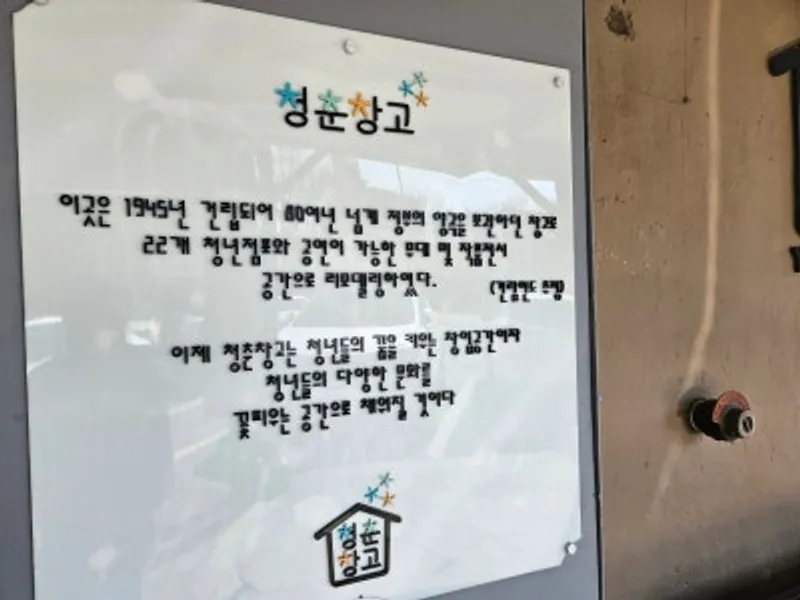 청춘창고
이곳은 1945년 건립되어 80여년 넘게 정부의 양곡을 보관하던 창고로
22개 청년점포와 공연이 가능한 무대 및 작품전시
공간으로 리모델링하였다.
(건립연도 추정)
이제 청춘창고는 청년들의 꿈을 키우는 창업공간이자
청년들의 다양한 문화를
꽃피우는 공간으로 채워질 것이다
청춘
창고